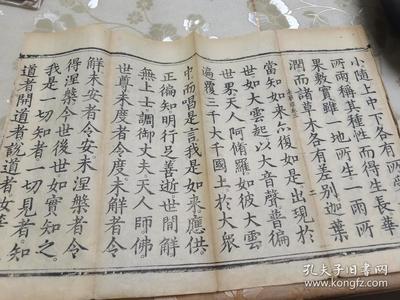 小隨上中下各有所受一雲
所雨稱其種性而得生長華
果敷實雖一地所生一雨所
潤而諸草木各有差別迦葉
當知如來亦復如是出現於
世如大雲起以大音聲普徧
世界天人阿脩羅如彼大雲
遍覆三千大千國土於大眾
中而唱是言我是如來應供
正徧知明行足善逝世間解
無上士調御丈夫天人師佛
世尊未度者令度未解者令
解未安者令安未涅槃者令
得涅槃今世後世如實知之
我是一切知者一切見者知
道者開道者說道者汝等
孔夫子旧书网